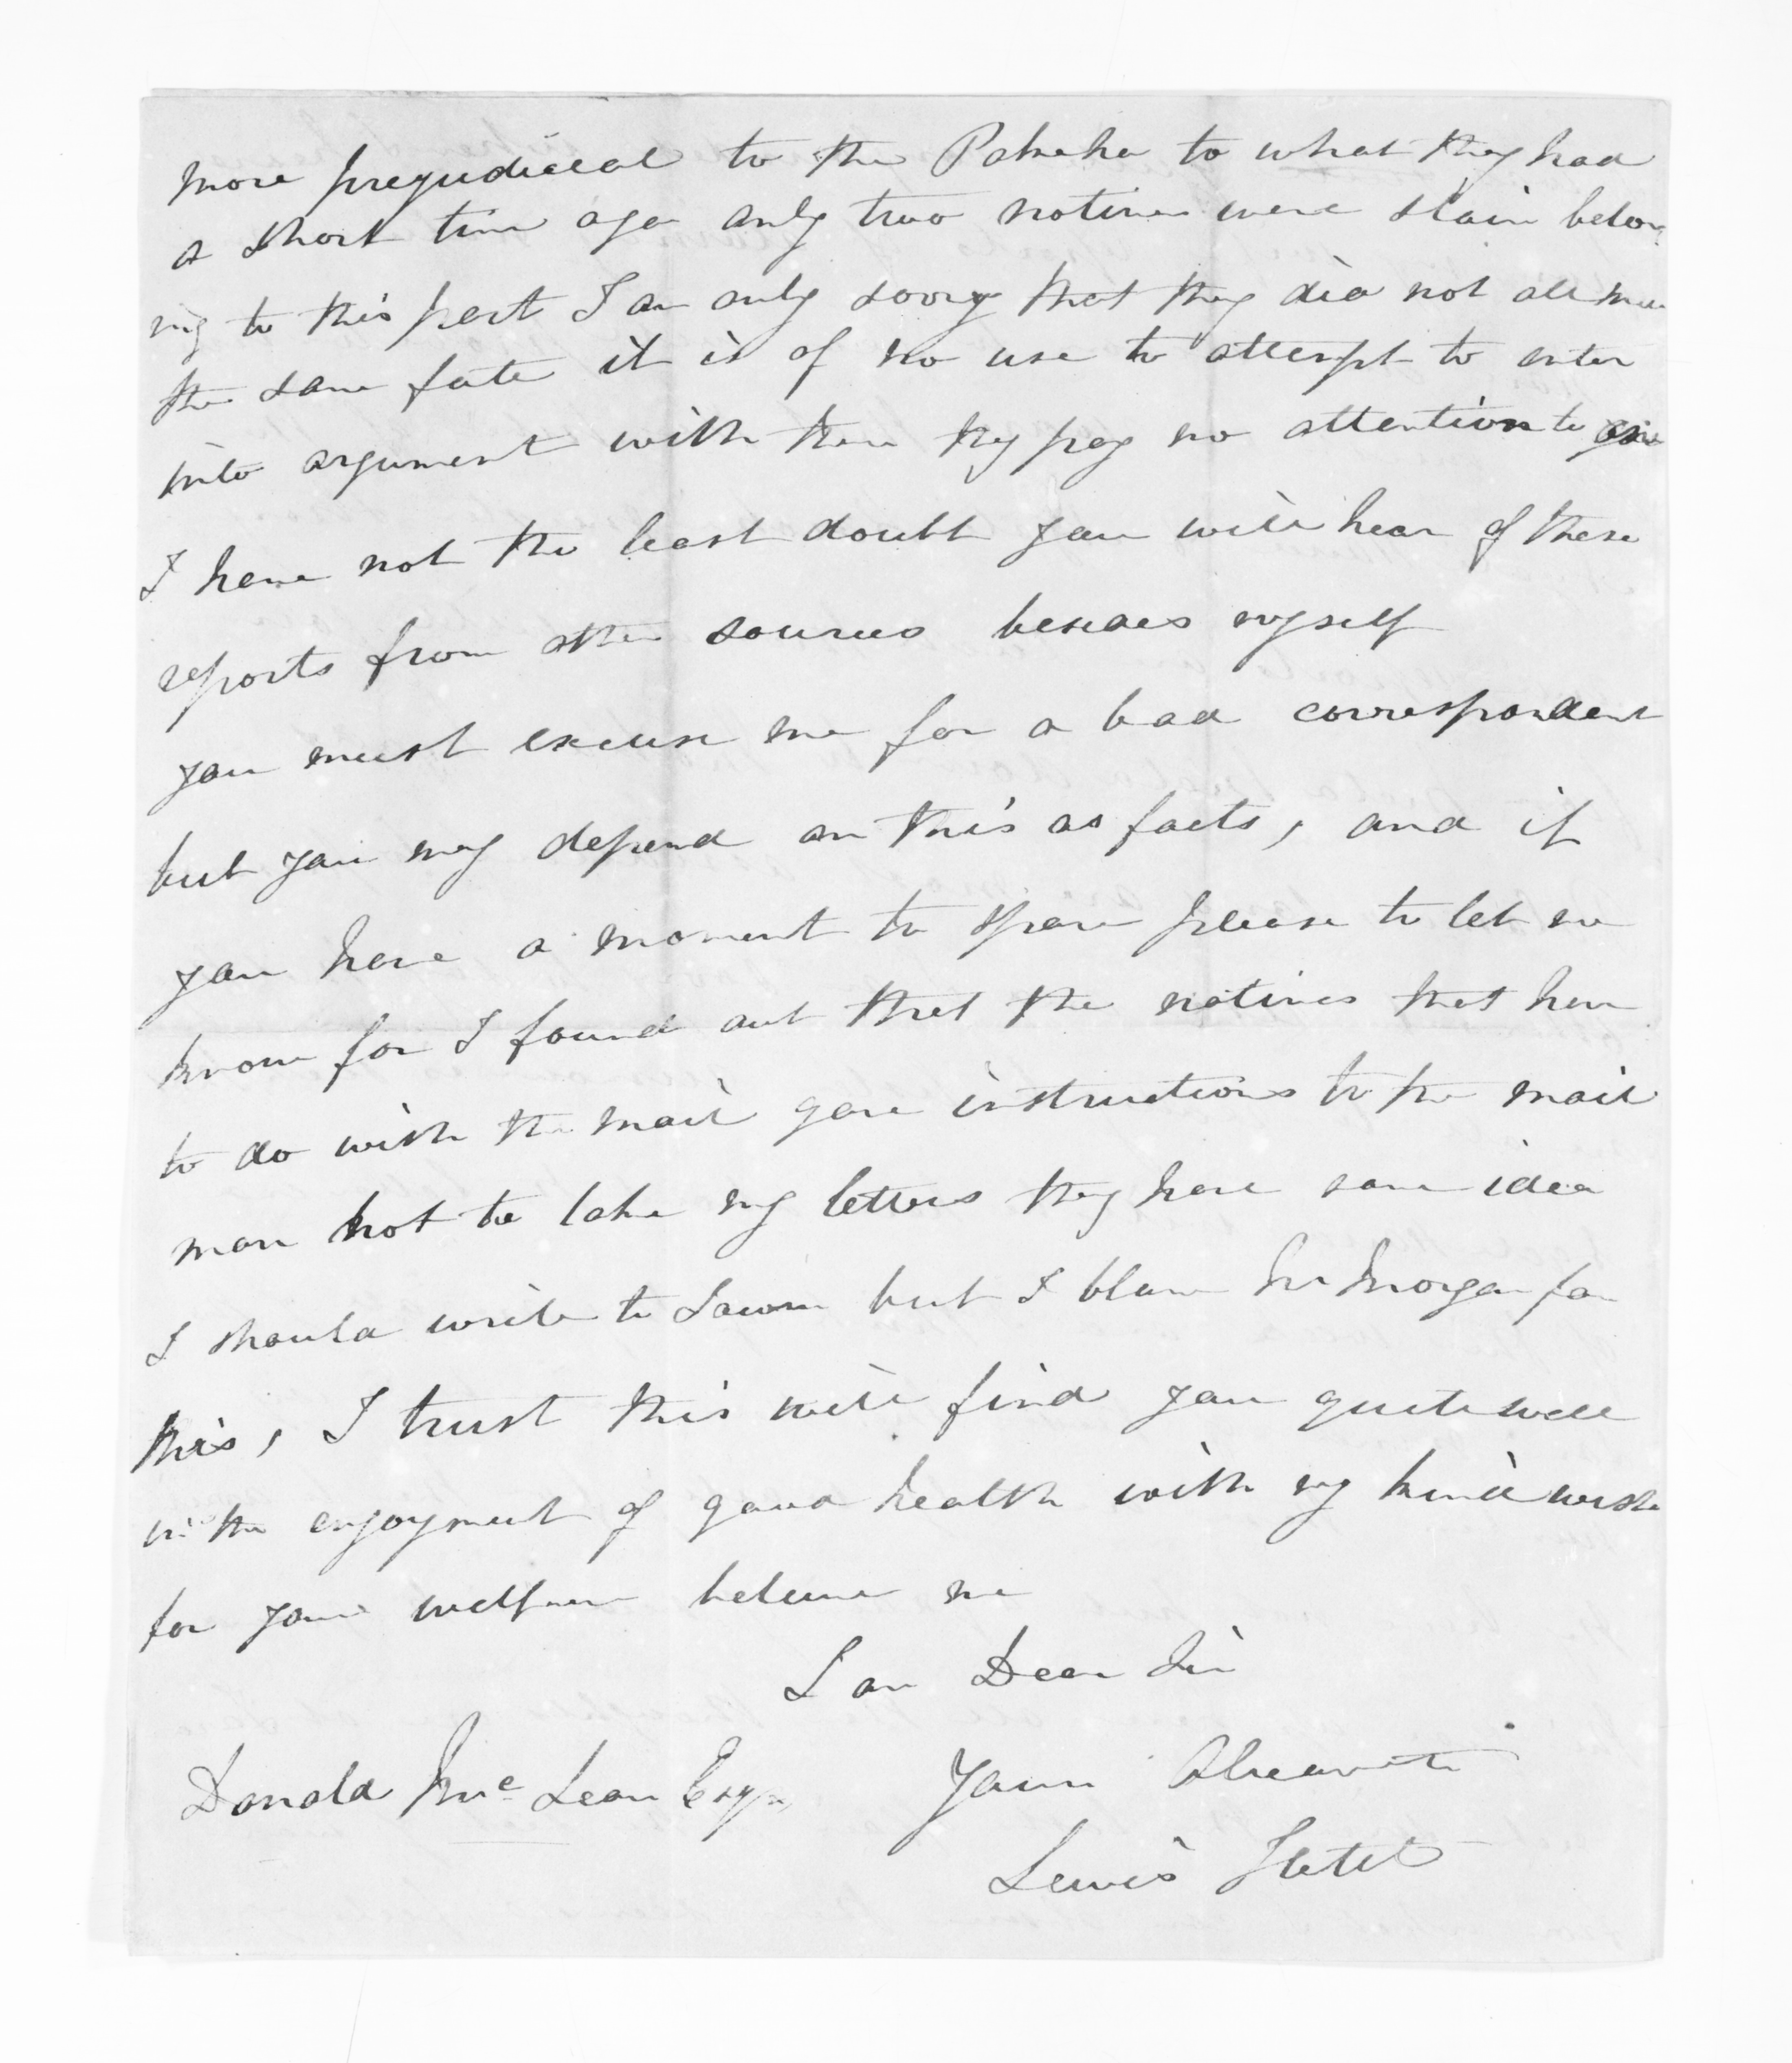 more prejudical to the Pakeha to what they had
a short time ago only two natives were slain belon
ing to this part I am only sorry that they did not all
the same fate it is of no use to attempt to enter
into argument with them they pay no attention to
I have not the least doubt you will hear of these
reports from other sources besides myself
you must excuse me for a bad correspondent
but you may depend on this as facts, and if
you have a moment to spare please to let me
know for I found out that the natives that have
to do with the mail gave instructions to the mail
man not to take my letters they have some idea
I should write to but I blame Mr Morgan for
this, I trust this will find you quite well
in the enjoyment of good health with my kind wishe
for your welfare believe me
I am Dear Sir
Donald McLean Esqr Yours
Lewis